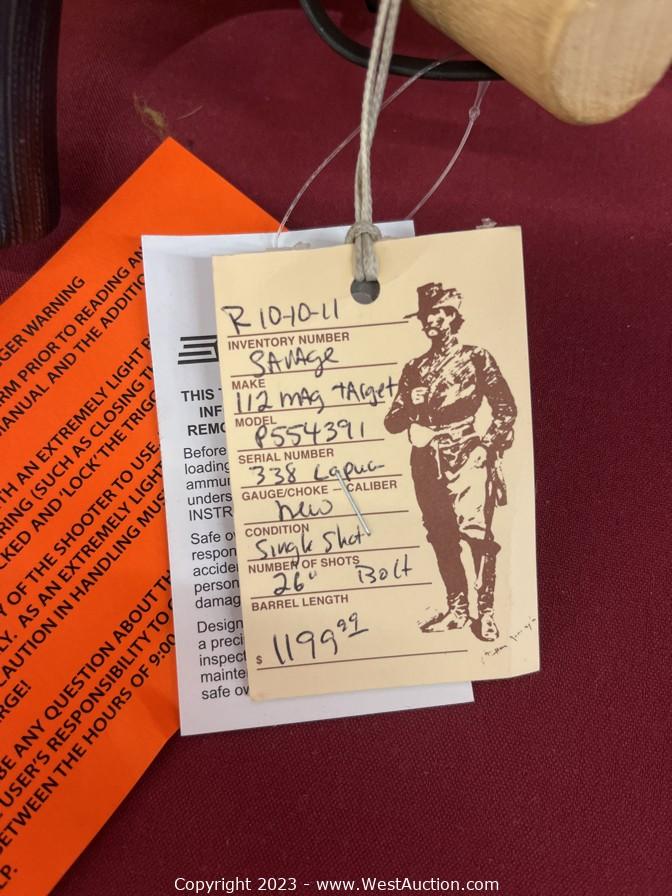 R 10-10-11
INVENTORY NUMBER
SAVAGE
MAKE
112 MAG TARGET
MODEL
P554391
SERIAL NUMBER
338 Lapua
GAUGE/CHOKE – CALIBER
New
CONDITION
Single Shot
NUMBER OF SHOTS
26" Bolt
BARREL LENGTH
$ 1199 99
THIS
INF
REMO
Before
loading
ammun
unders
INSTR
Safe ow
respon
accide
person
damag
Design
a preci
inspect
mainte
safe ow
GER WARNING
RM PRIOR TO READING AN
MANUAL AND THE ADDITIO
TH AN EXTREMELY LIGHT
RING (SUCH AS CLOSING TH
CKED AND 'LOCK' THE TRIGG
Y OF THE SHOOTER TO USE
LY. AS AN EXTREMELY LIGHT
CAUTION IN HANDLING MUS
RGE!
BE ANY QUESTION ABOUT TH
E USER'S RESPONSIBILITY TO
BETWEEN THE HOURS OF 9:00
LP.
Copyright 2023 - www.WestAuction.com